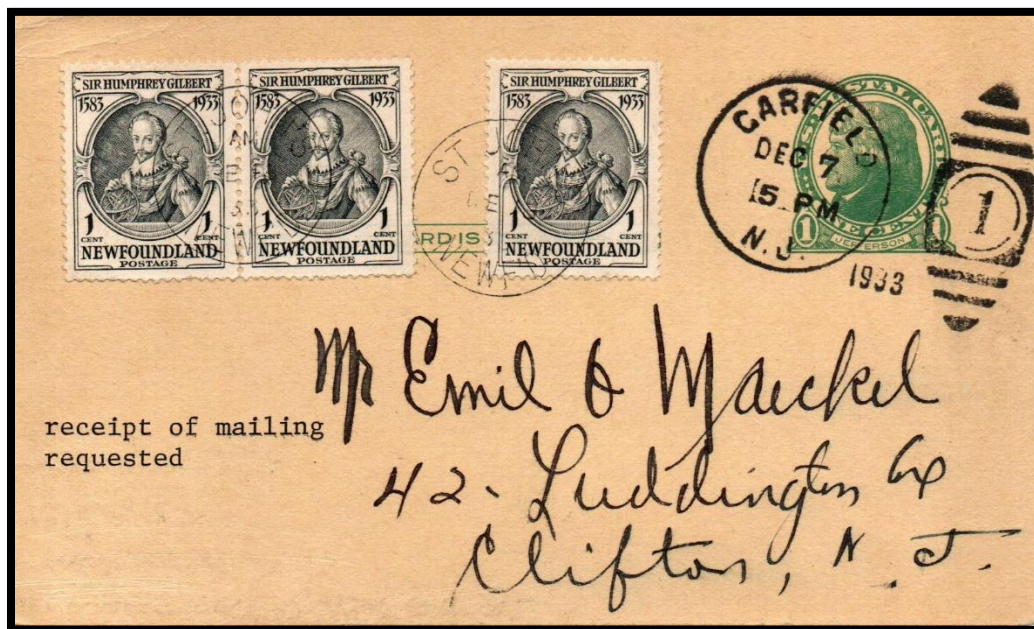 SIR HUMPHREY GILBERT
1583 1933
1 CENT 1 CENT
NEWFOUNDLAND
POSTAGE
SIR HUMPHREY GILBERT
1583 1933
1 CENT 1 CENT
NEWFOUNDLAND
POSTAGE
ARD IS
SIR HUMPHREY GILBERT
1583 1933
1 CENT 1 CENT
NEWFOUNDLAND
POSTAGE
GARFIELD
DEC 7
5 PM
N.J.
1933
1
JEFFERSON
Mr Emil O Maeckel
receipt of mailing
requested
42- Luddington
Clifton, N. J.